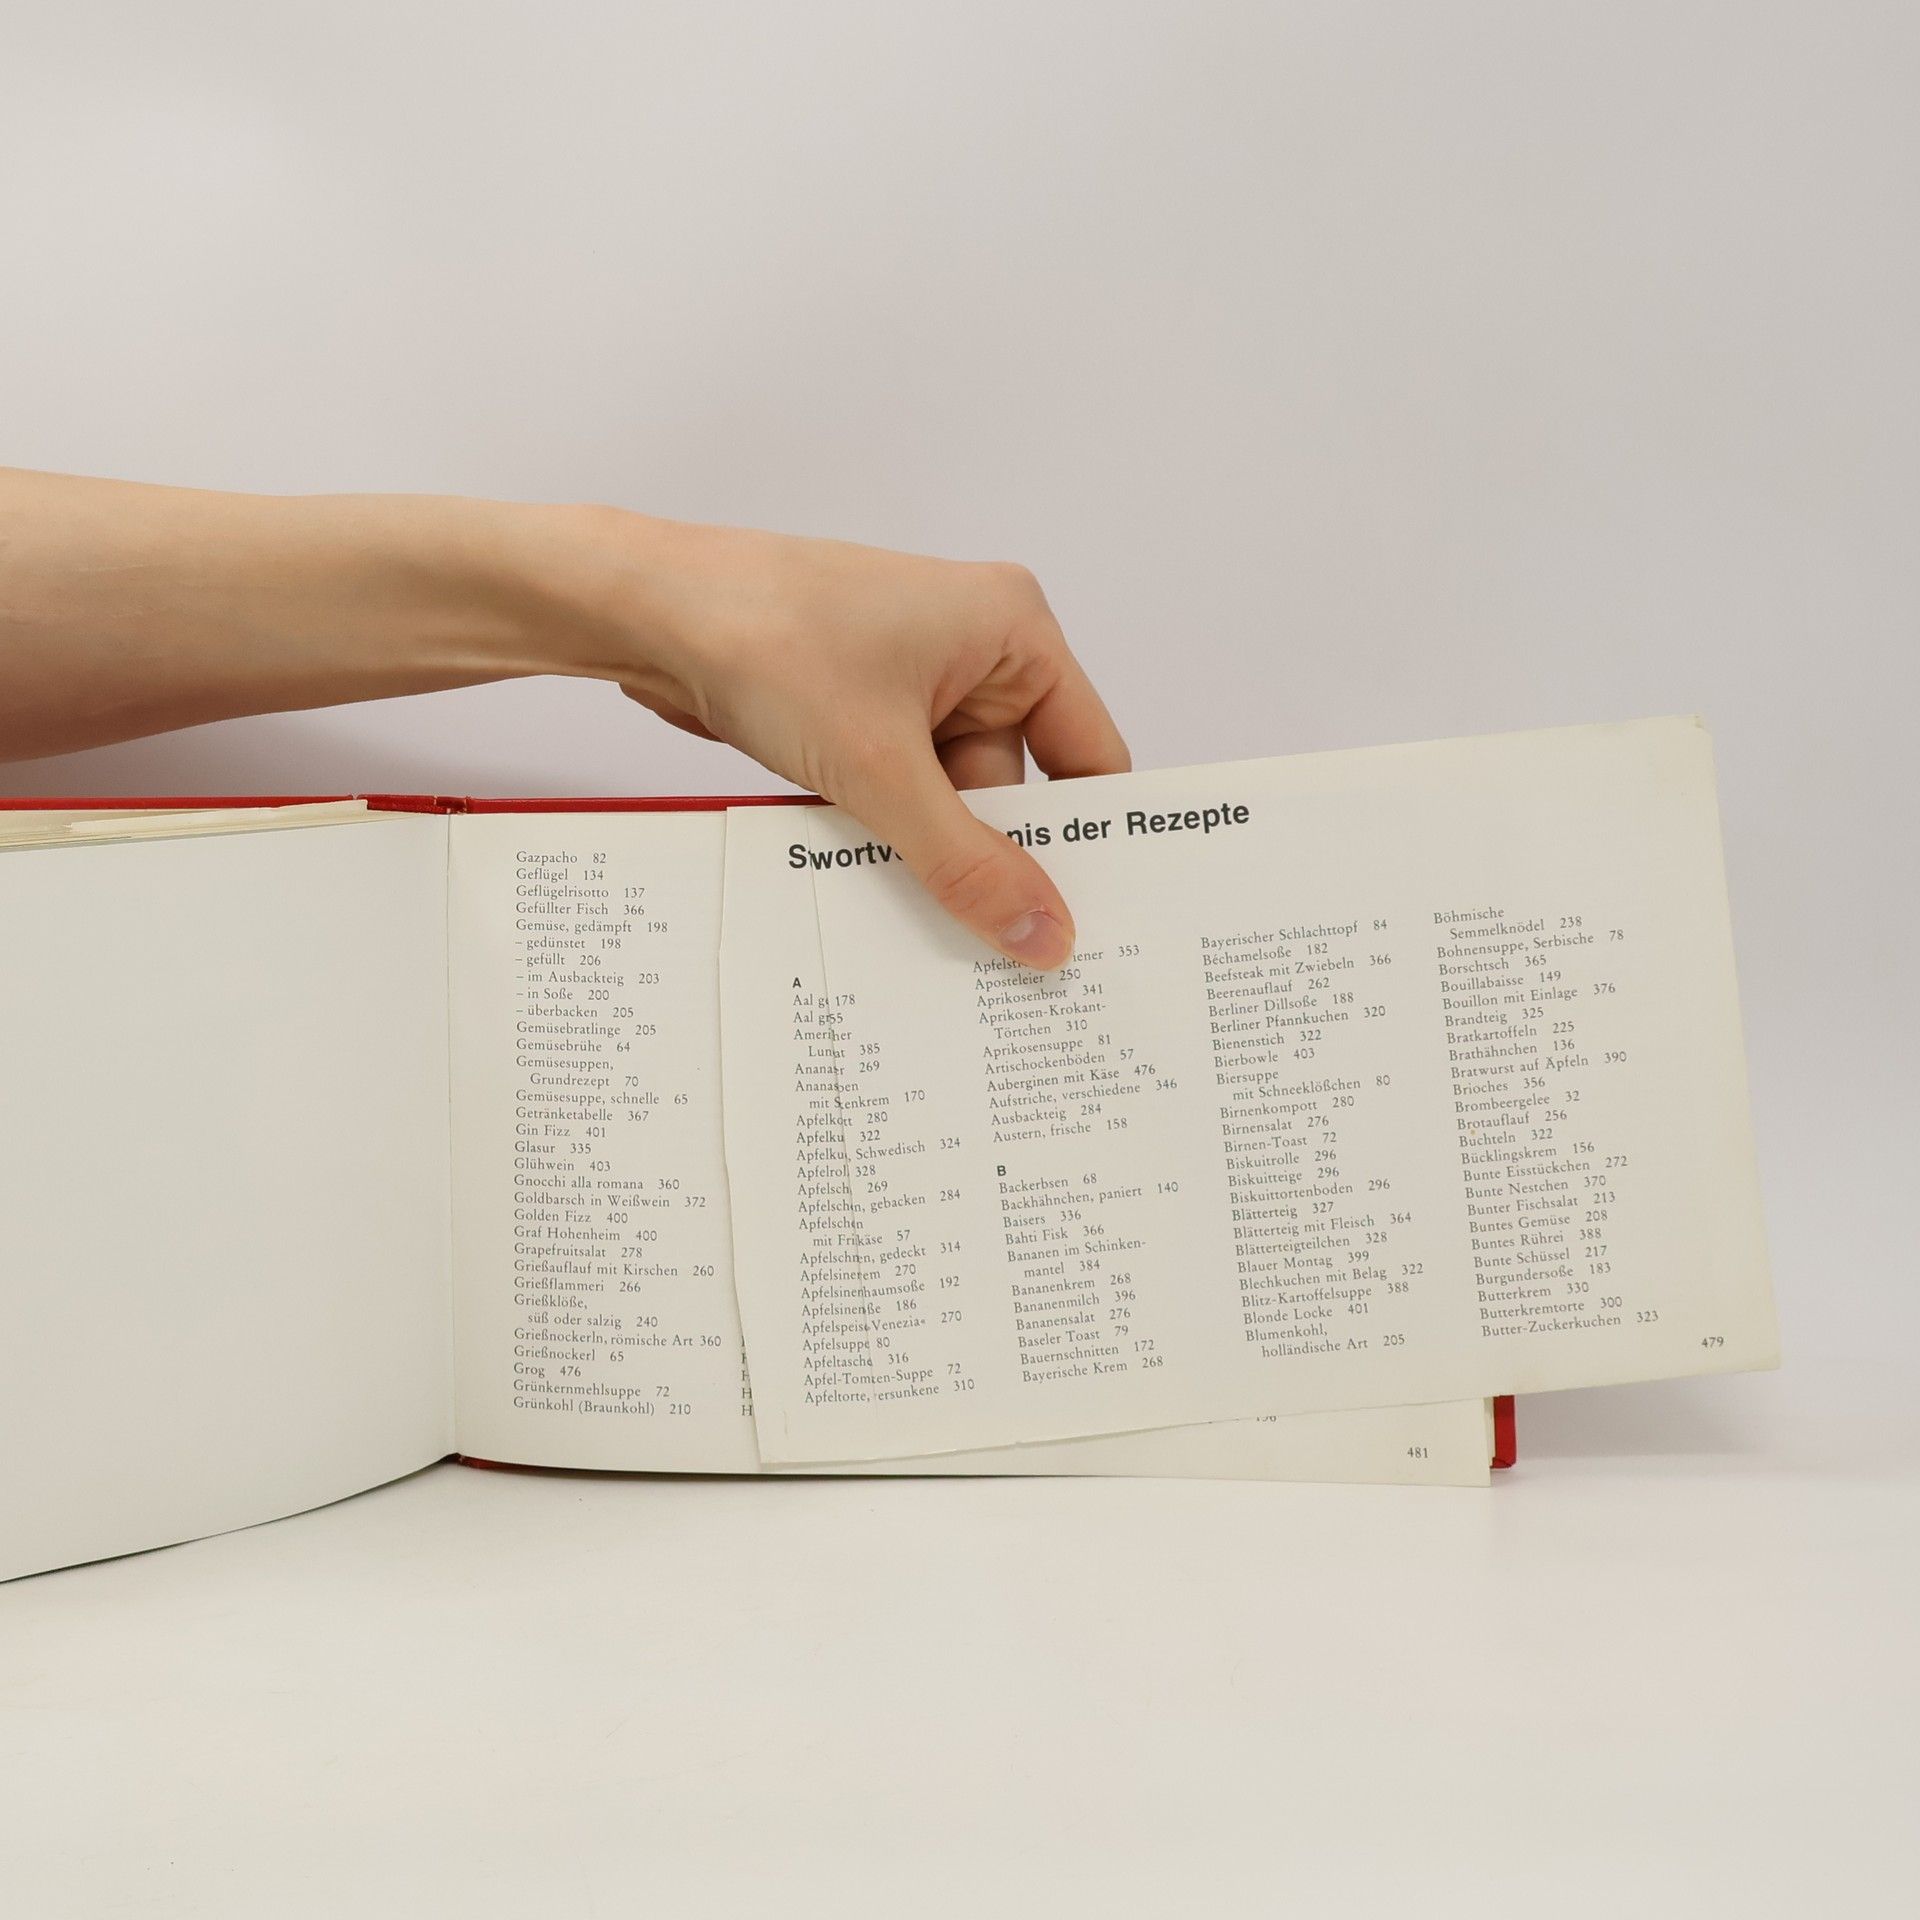 Gazpacho 82
Geflügel 134
Geflügelrisotto 137
Gefüllter Fisch 366
Gemüse, gedämpft 198
– gedünstet 198
– gefüllt 206
– im Ausbackteig 203
– in Soße 200
– überbacken 205
Gemüsebratlinge 205
Gemüsebrühe 64
Gemüsesuppen,
Grundrezept 70
Gemüsesuppe, schnelle 65
Getränketabelle 367
Gin Fizz 401
Glasur 335
Glühwein 403
Gnocchi alla romana 360
Goldbarsch in Weißwein 372
Golden Fizz 400
Graf Hohenheim 400
Grapefruitsalat 278
Grießauflauf mit Kirschen 260
Grießflammeri 266
Grießklöße,
süß oder salzig 240
Grießnockerln, römische Art 360
Grießnockerl 65
Grog 476
Grünkernmehlsuppe 72
Grünkohl (Braunkohl) 210
der Rezepte
A
Aal 178
Aal
385
269
mit 170
280
322
Schwedisch 324
328
269
gebacken 284
mit 57
gedeckt 314
270
192
186
270
Apfelsuppe 80
Apfeltasche 316
72
Apfeltorte, 310
353
Aposteleier 250
Aprikosenbrot 341
Aprikosen-Krokant-
Törtchen 310
Aprikosensuppe 81
Artischockenböden 57
Auberginen mit Käse 476
Aufstriche, verschiedene 346
Ausbackteig 284
Austern, frische 158
B
Backerbsen 68
Backhähnchen, paniert 140
Baisers 336
Bahti Fisk 366
Bananen im Schinken-
mantel 384
Bananenkrem 268
Bananenmilch 396
Bananensalat 276
Baseler Toast 79
Bauernschnitten 172
Bayerische Krem 268
Bayerischer Schlachttopf 84
Béchamelsoße 182
Beefsteak mit Zwiebeln 366
Beerenauflauf 262
Berliner Dillsoße 188
Berliner Pfannkuchen 320
Bienenstich 322
Bierbowle 403
Biersuppe
mit Schneeklößchen 80
Birnenkompott 280
Birnensalat 276
Birnen-Toast 72
Biskuitrolle 296
Biskuitteige 296
Biskuittortenboden 296
Blätterteig 327
Blätterteig mit Fleisch 364
Blätterteigteilchen 328
Blauer Montag 399
Blechkuchen mit Belag 322
Blitz-Kartoffelsuppe 388
Blonde Locke 401
Blumenkohl,
holländische Art 205
Böhmische
Semmelknödel 238
Bohnensuppe, Serbische 78
Borschtsch 365
Bouillabaisse 149
Bouillon mit Einlage 376
Brandteig 325
Bratkartoffeln 225
Brathähnchen 136
Bratwurst auf Äpfeln 390
Brioches 356
Brombeergelee 32
Brotauflauf 256
Buchteln 322
Bücklingskrem 156
Bunte Eisstückchen 272
Bunte Nestchen 370
Bunter Fischsalat 213
Buntes Gemüse 208
Buntes Rührei 388
Bunte Schüssel 217
Burgundersoße 183
Butterkrem 330
Butterkremtorte 300
Butter-Zuckerkuchen 323
479
481